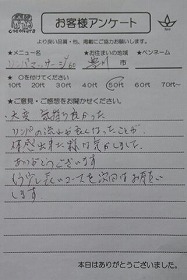 お客様アンケート
より良い品質・他、掲載にご協力お願いします。
★メニュー名 ★お住まいの地域 ★ペンネーム
リンパマッサージ60 市
★○を付けてください
10代 20代 30代 40代 50代 60代 70代~
★ご意見・ご感想をお聞かせください。
大変 気持ち良かった
リンパの流れが良くなったことが
体感出来た様な気がしました。
ありがとうございます
もう少し長いコースを次回はお願い
します
本日はありがとうございました。